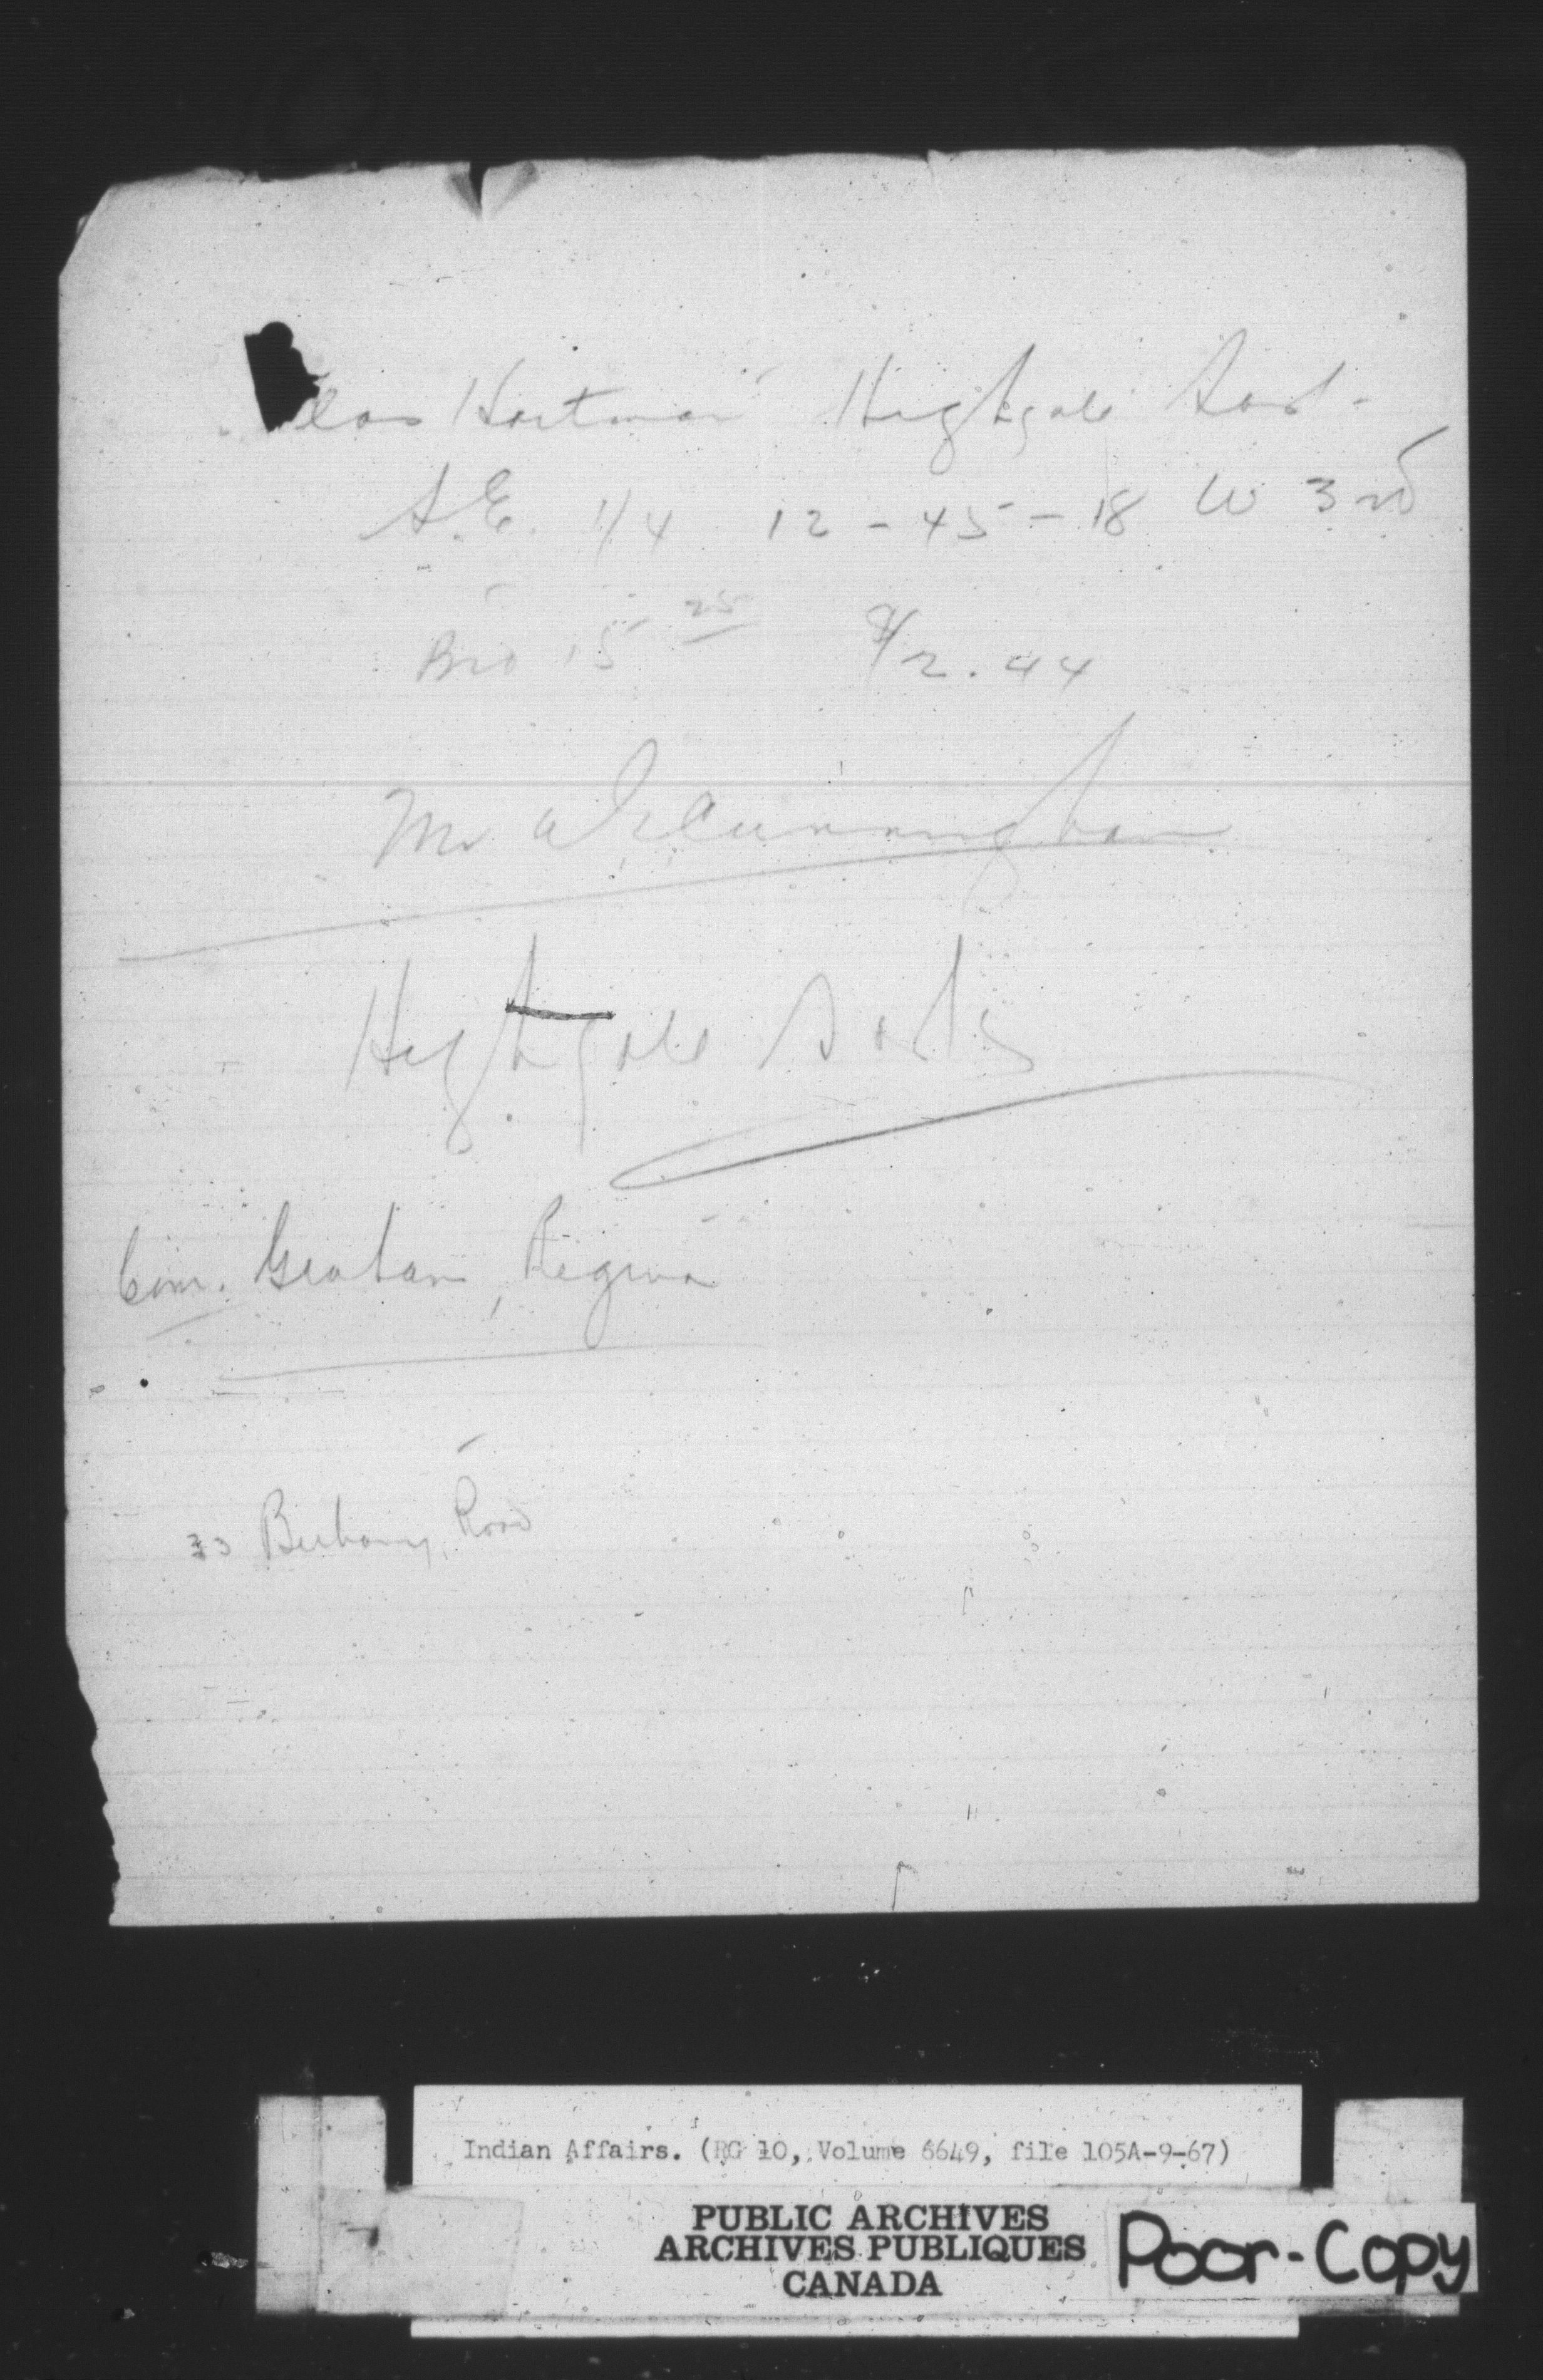 Hartman Highgate Sask.
S.E. 1/4 12 - 45 - 18 W 3rd
15 25 9/2.44
Mr Cunningham
Highgate Sask
Com. Graham, Regina
33 Road
Indian Affairs. (RG 10, Volume 6649, file 105A-9-67)
PUBLIC ARCHIVES
ARCHIVES PUBLIQUES
CANADA
Poor-Copy